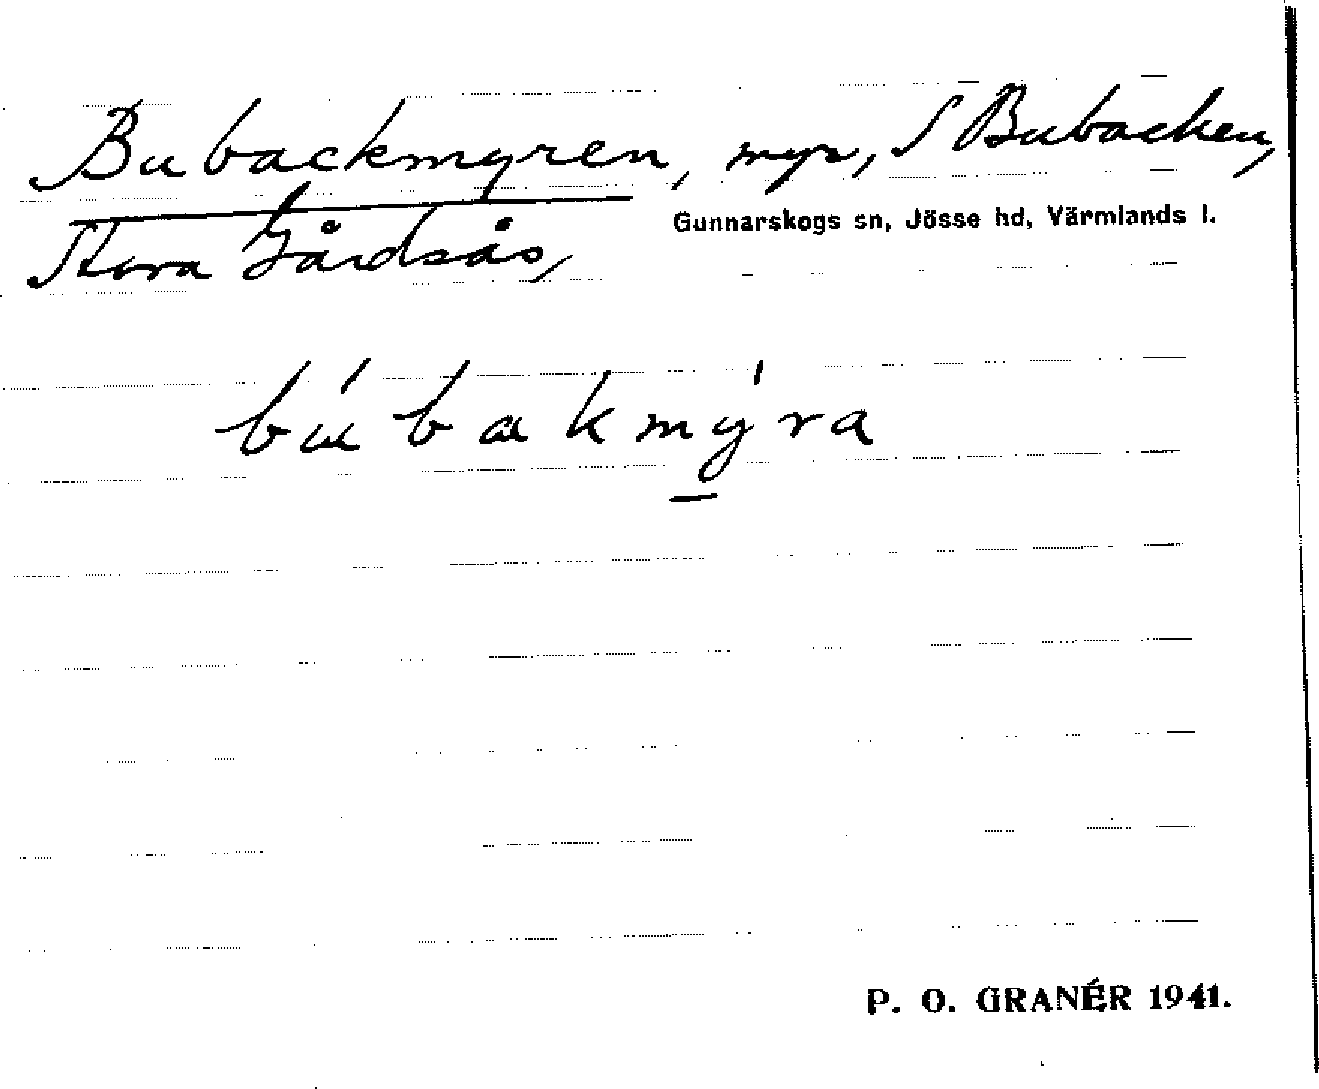 Bubackmyren, myr, S Bubacken,
Gunnarskogs sn, Jösse hd, Värmlands l.
Stora Gårdsås,
búbakmýra
P. O. GRANÉR 1941.